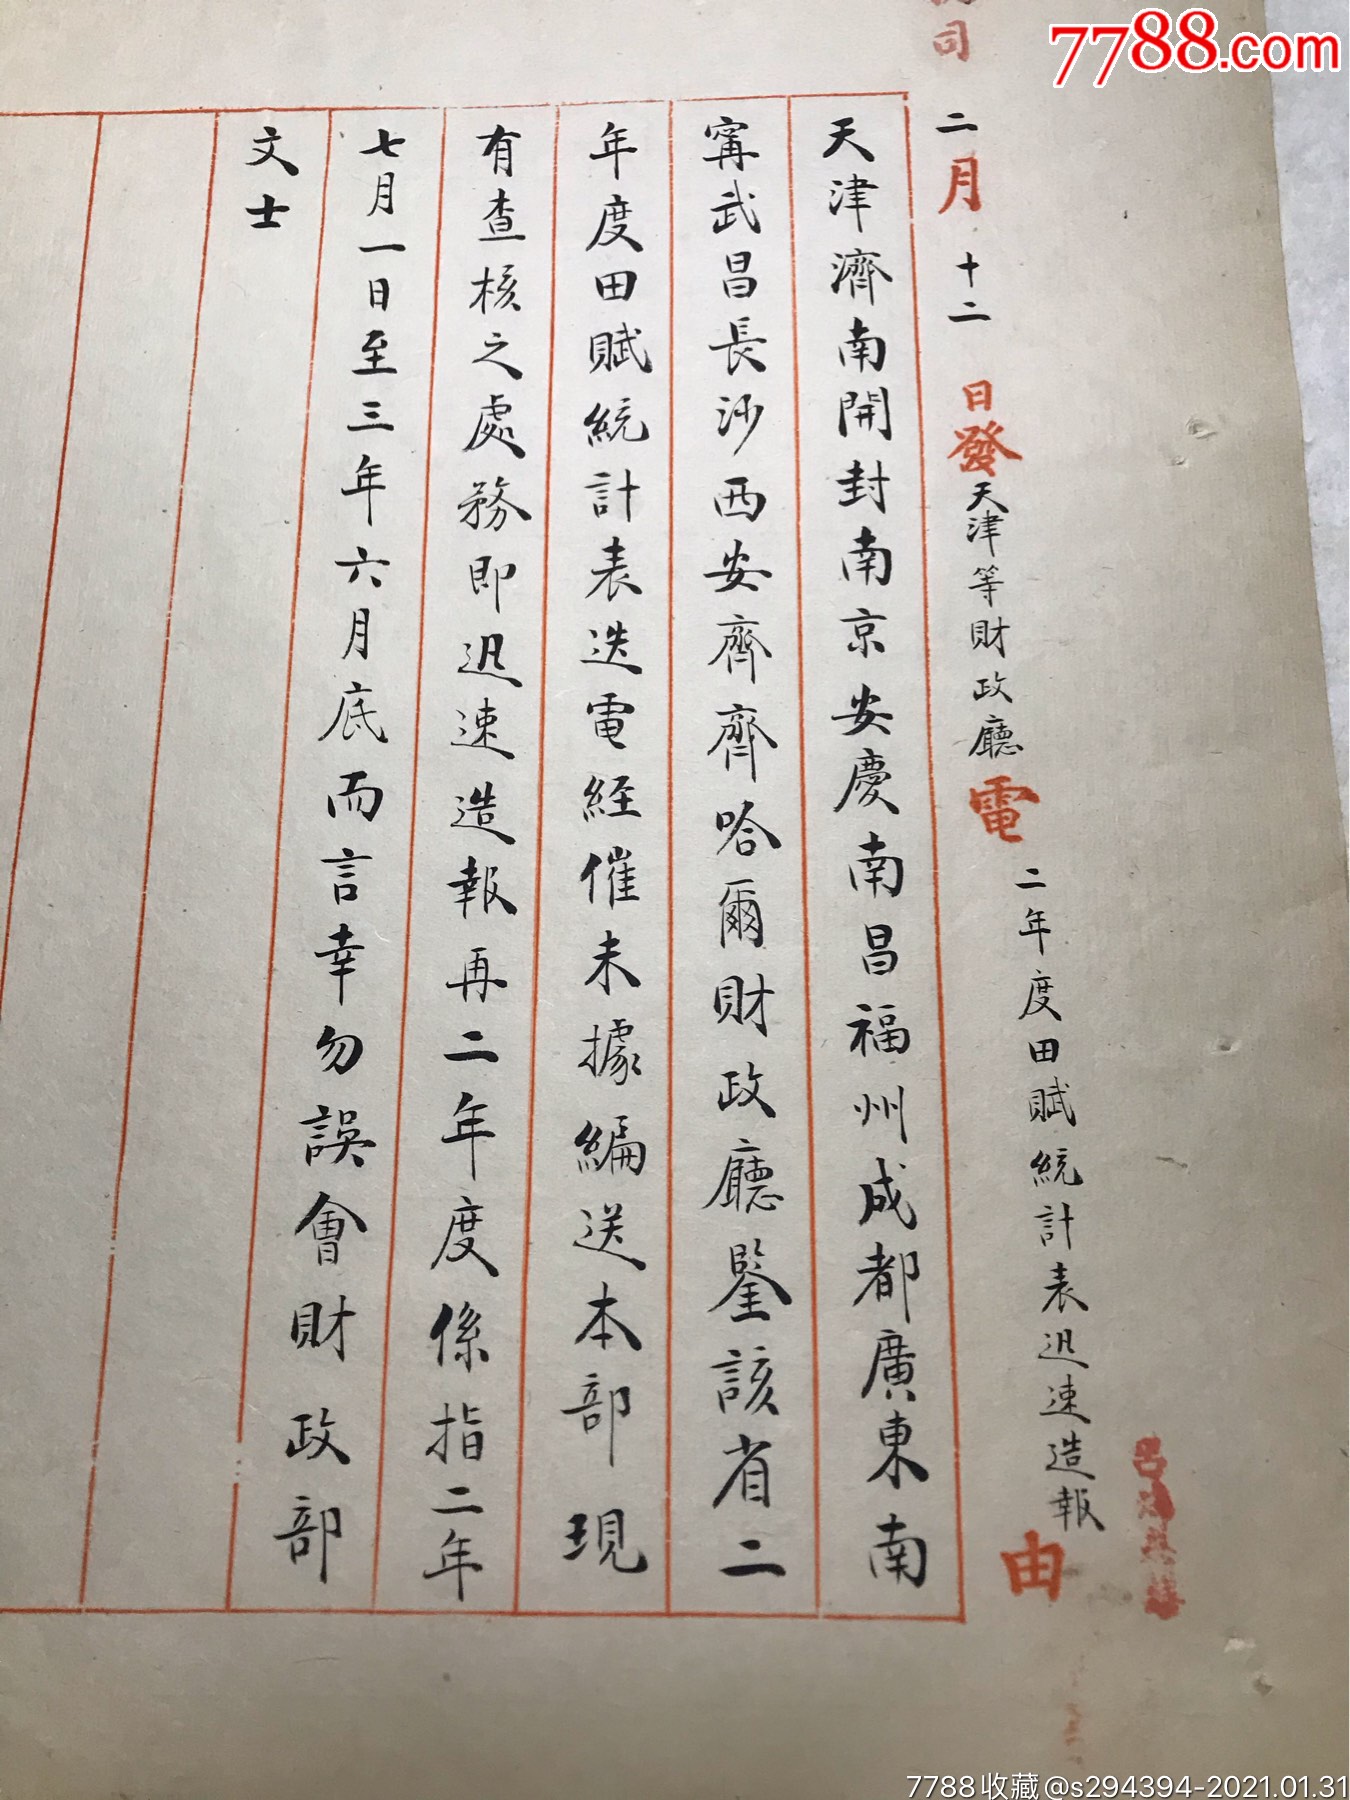 7788.com
司
二月十二日發天津等財政廳電二年度田賦統計表迅速造報由
天津濟南開封南京安慶南昌福州成都廣東南
甯武昌長沙西安齊齊哈爾財政廳鑒該省二
年度田賦統計表迭電經催未據編送本部現
有查核之處務即迅速造報再二年度係指二年
七月一日至三年六月底而言幸勿誤會財政部
文士
7788收藏@s294394-2021.01.31